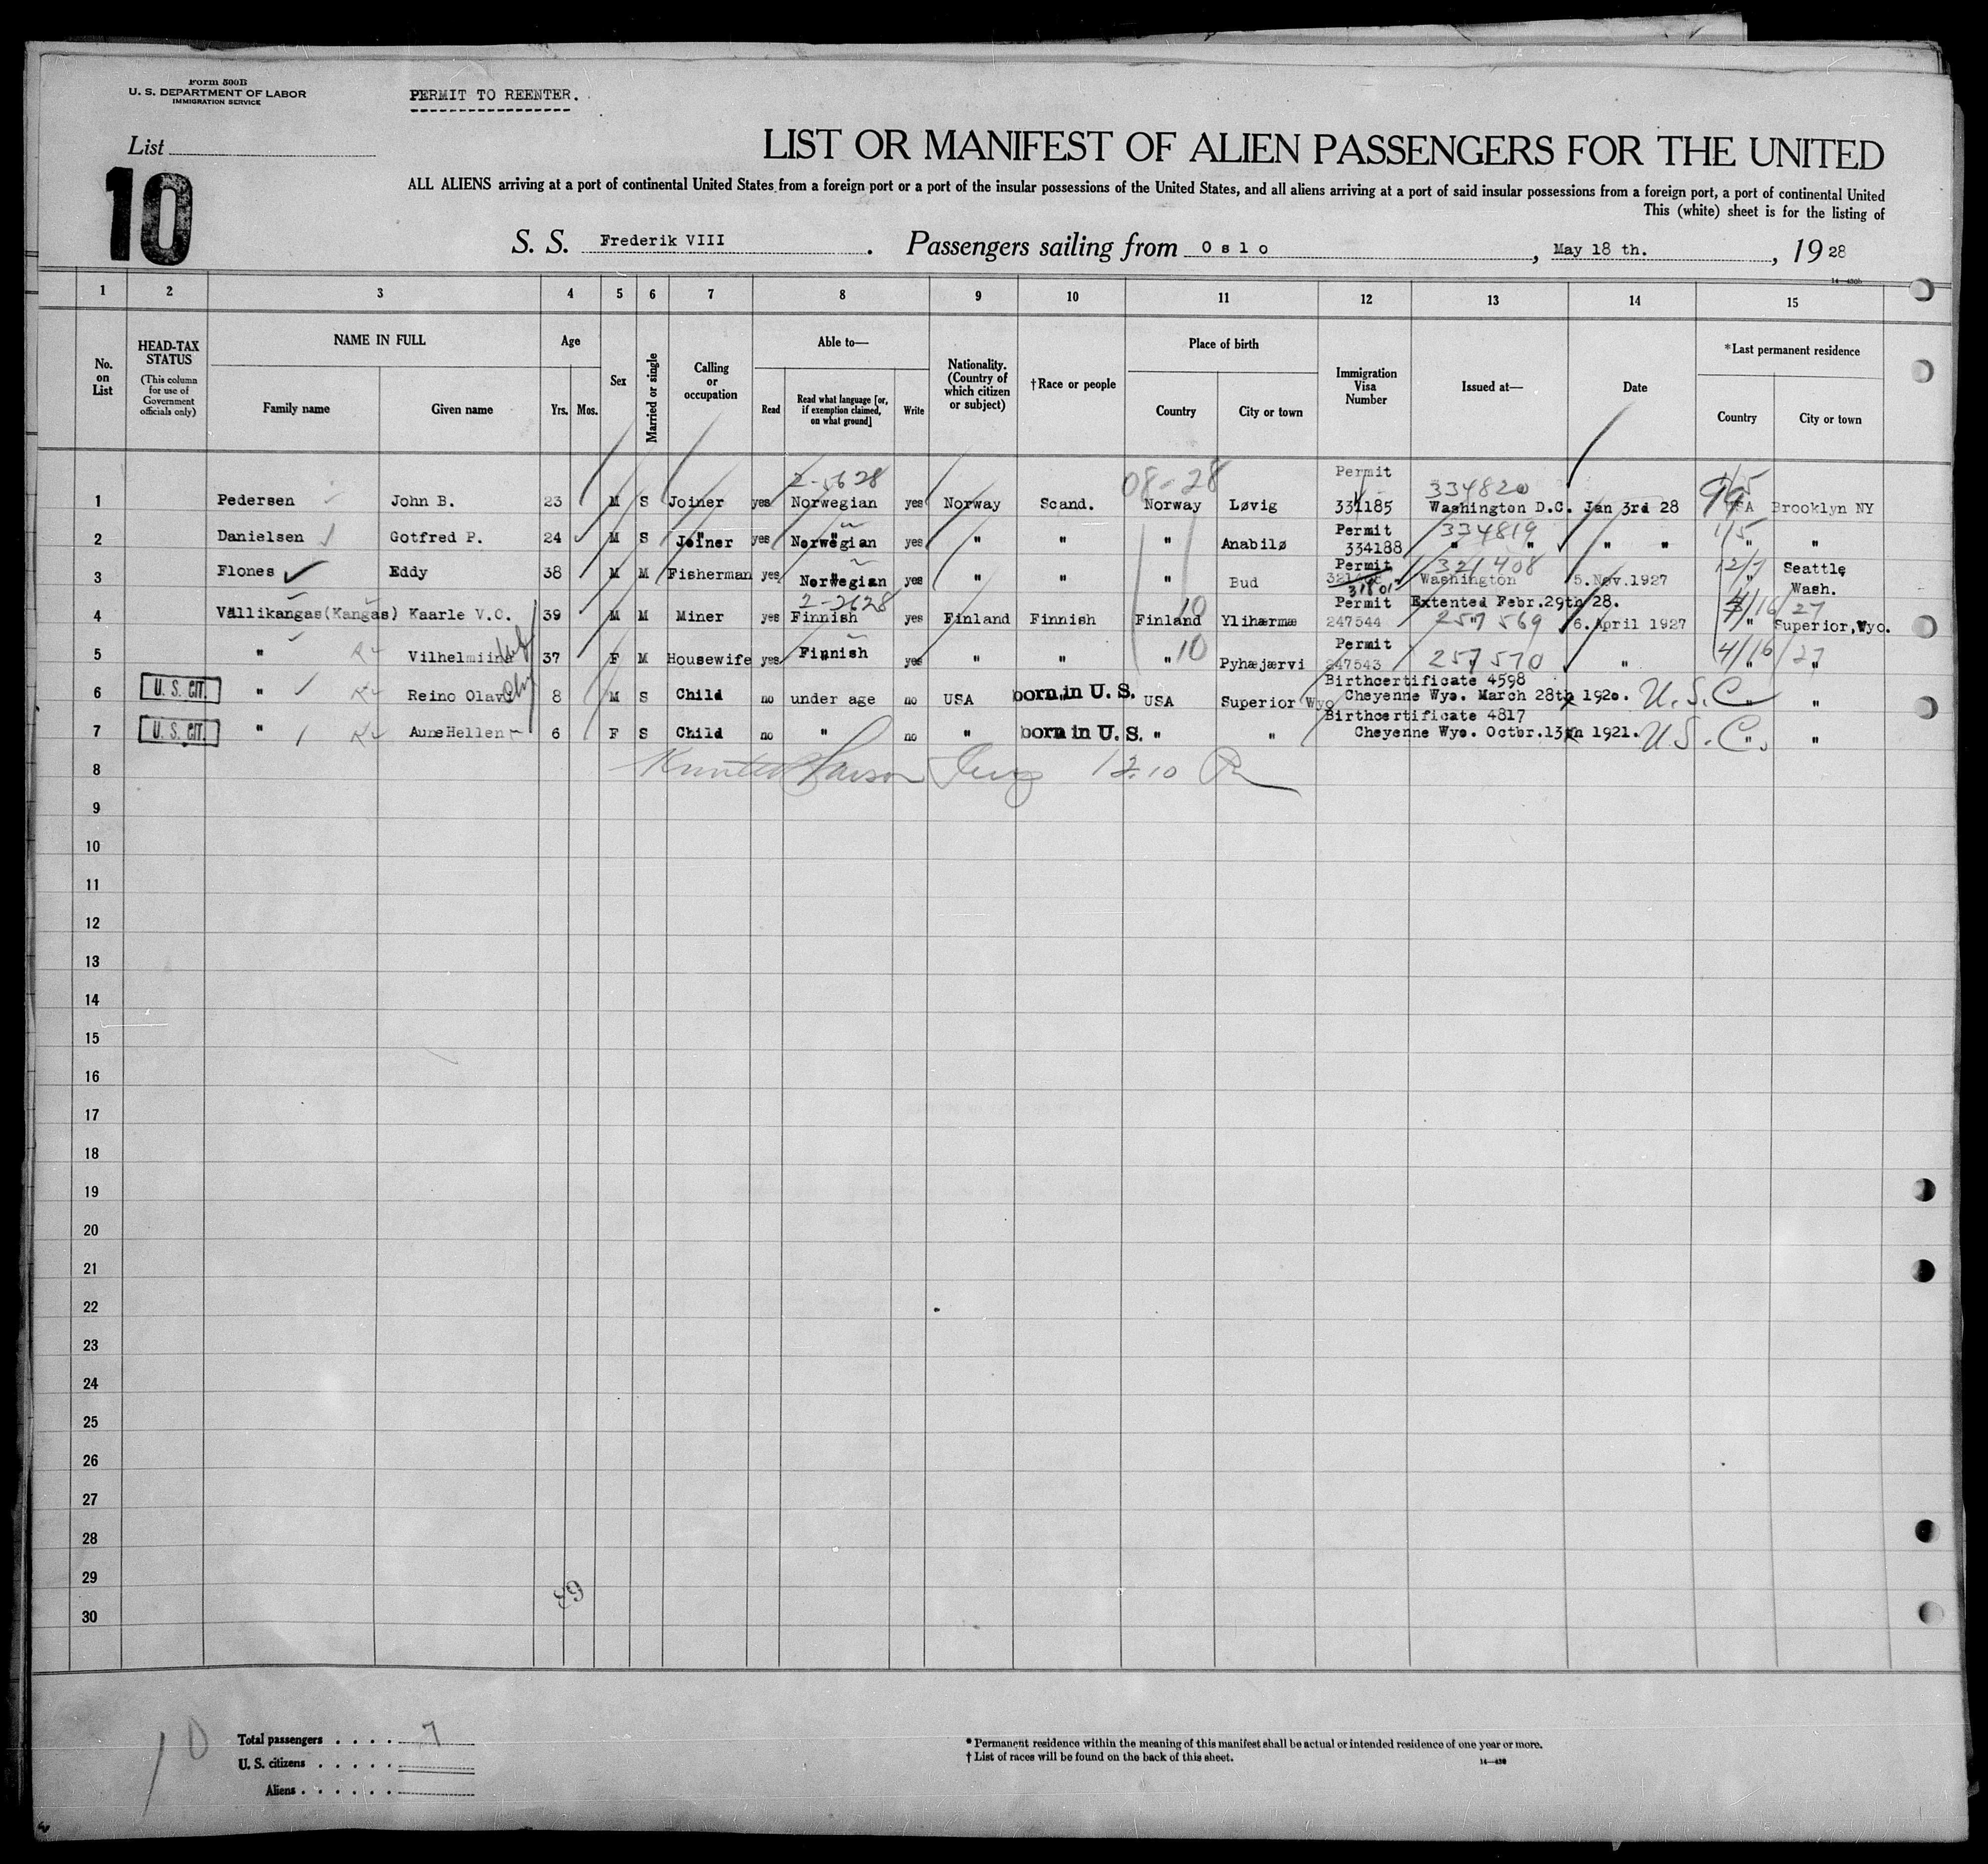 Form 500B
U. S. DEPARTMENT OF LABOR
IMMIGRATION SERVICE
PERMIT TO REENTER.
List
10
LIST OR MANIFEST OF ALIEN PASSENGERS FOR THE UNITED
ALL ALIENS arriving at a port of continental United States from a foreign port or a port of the insular possessions of the United States, and all aliens arriving at a port of said insular possessions from a foreign port, a port of continental United
This (white) sheet is for the listing of
S. S. Frederik VIII . Passengers sailing from Oslo , May 18 th. , 19 28
14—430b
1 2 3 4 5 6 7 8 9 10 11 12 13 14 15
No. on List
HEAD-TAX STATUS
(This column for use of Government officials only)
NAME IN FULL
Family name Given name
Age
Yrs. Mos.
Sex
Married or single
Calling or occupation
Able to—
Read
Read what language [or, if exemption claimed, on what ground]
Write
Nationality. (Country of which citizen or subject)
†Race or people
Place of birth
Country City or town
Immigration Visa Number
Issued at—
Date
*Last permanent residence
Country City or town
2-5628 08-28 Permit 334820 1/5
1 Pedersen John B. 23 M S Joiner yes Norwegian yes Norway Scand. Norway Løvig 334185 Washington D.C. Jan 3rd 28 USA Brooklyn NY
Permit 334819 1/5
2 Danielsen Gotfred P. 24 M S Joiner yes Norwegian yes " " " Anabilø 334188 " " " " " "
Permit 321408 12/7 Seattle,
3 Flones Eddy 38 M M Fisherman yes Norwegian yes " " " Bud 31801 Washington 5.Nov.1927 " Wash.
2-2628 10 Permit Extented Febr.29th 28. 4/16/27
4 Vällikangas(Kangas) Kaarle V.O. 39 M M Miner yes Finnish yes Finland Finnish Finland Ylihærmæ 247544 257569 6.April 1927 " Superior,Wyo.
10 Permit 4/16/27
5 " Vilhelmiina 37 F M Housewife yes Finnish yes " " " Pyhæjærvi 247543 257570 " " "
Birthcertificate 4598
6 U. S. CIT. " Reino Olavi 8 M S Child no under age no USA born in U. S. USA Superior Wyo Cheyenne Wyo. March 28th 1920. U.S.C. " "
Birthcertificate 4817
7 U. S. CIT. " Aune Hellen 6 F S Child no " no " born in U. S. " " Cheyenne Wyo. Octbr.13th 1921. U.S.C. " "
8 12.10
9
10
11
12
13
14
15
16
17
18
19
20
21
22
23
24
25
26
27
28
29
30
10
Total passengers . . . . 7
U. S. citizens . . . . .
Aliens . . . . . .
* Permanent residence within the meaning of this manifest shall be actual or intended residence of one year or more.
† List of races will be found on the back of this sheet.
14—430